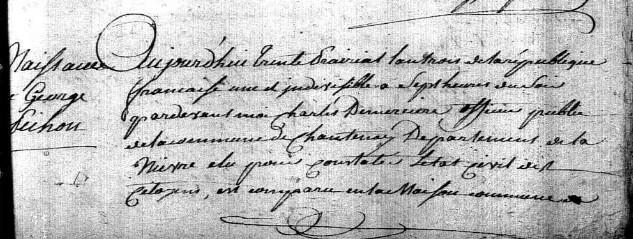 Naissance
George
Aujourdhui trente prairial lan trois de la république
francaise une et indivisible a Sept heures du Soir
pardevant moi Charles officier public
de la commune de Chantenay Departement de la
Nievre elu pour constater letat civil des
Citoyens, est comparu en la Maison commune